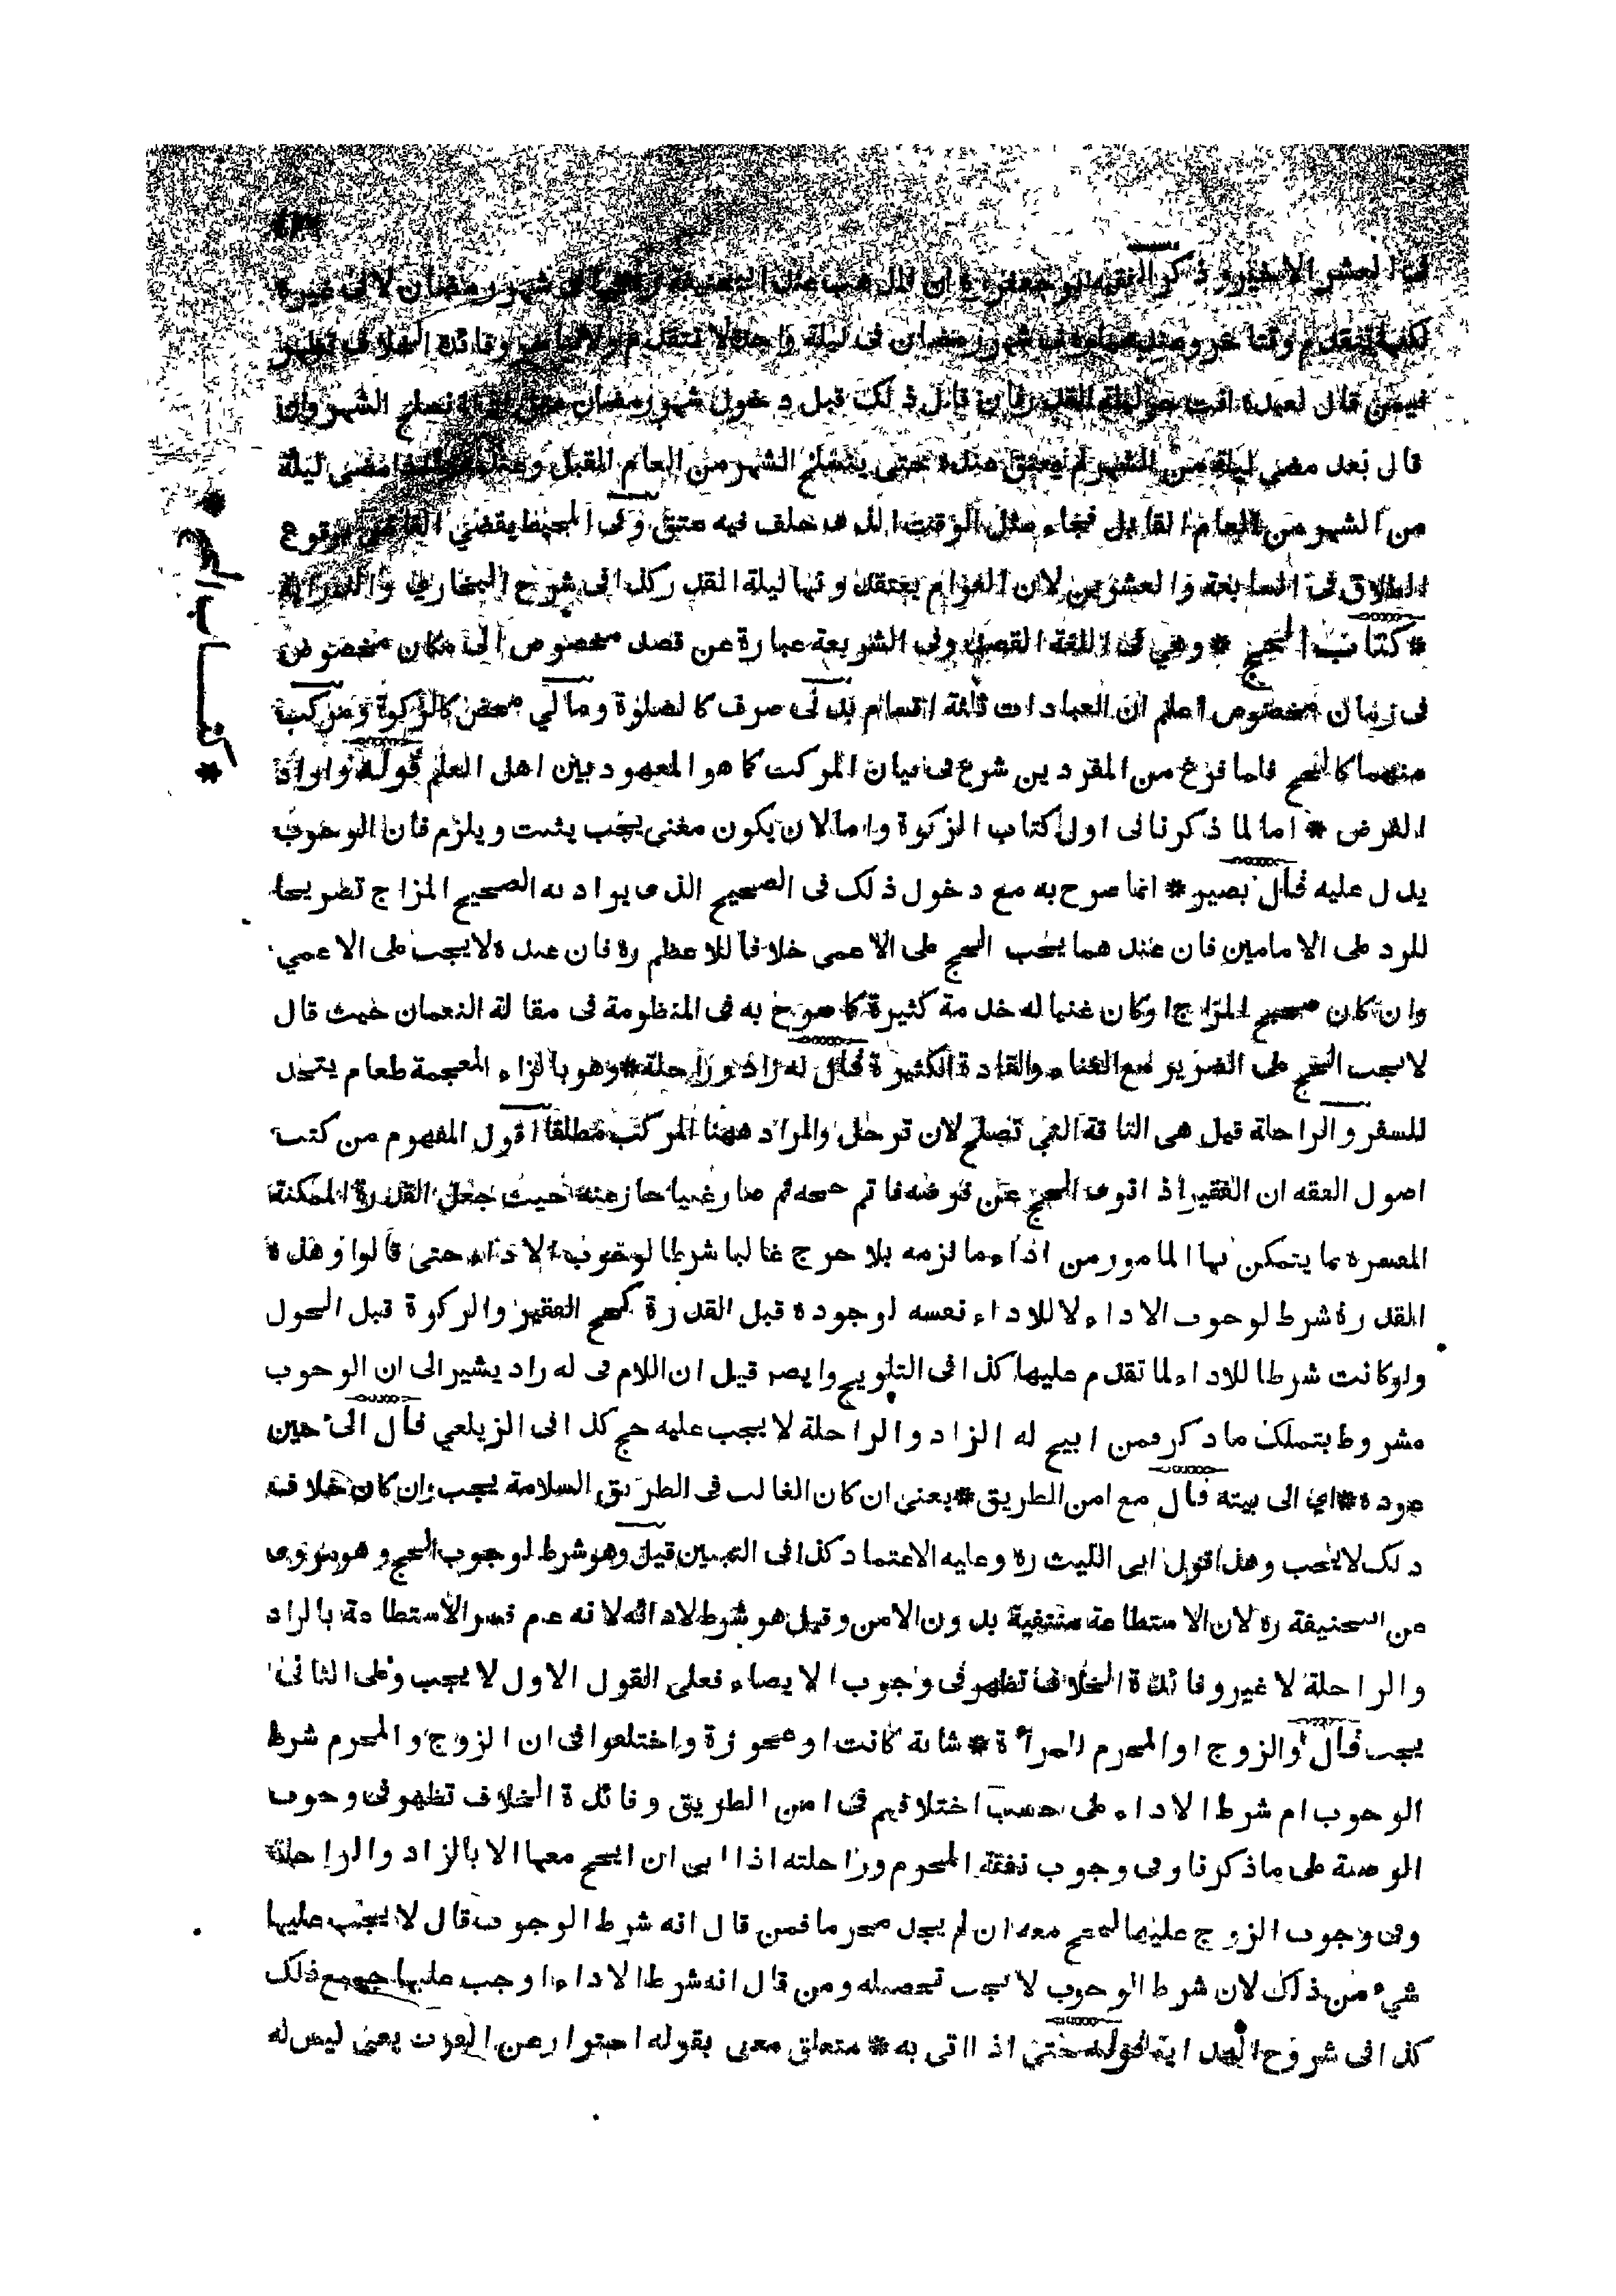 في العشر الاخير وذكر الفقيه ابو جعفر ره ان المذهب عند ابيحنيفة ره انها في شهر رمضان لا في غيره
لكنها تتقدم وتتاخر وعندهما في شهر رمضان في ليلة واحدة لا تتقدم ولا تتاخر وفائدة الخلاف تظهر
فيمن قال لعبده انت حر ليلة القدر فان قال ذلك قبل دخول شهر رمضان عتق اذا انسلخ الشهر وان
قال بعد مضي ليلة من الشهر لم يعتق عنده حتى ينسلخ الشهر من العام المقبل وعندهما اذا مضى ليلة
من الشهر من العام القابل فجاء مثل الوقت الذى حلف فيه عتق وفى المحيط يقضي القاضي بوقوع
الطلاق فى السابعة والعشرين لان العوام يعتقدونها ليلة القدر كذا فى شرح البخاري والدراية
* كتاب الحج * وهي فى اللغة القصد وفى الشريعة عبارة عن قصد مخصوص الى مكان مخصوص
فى زمان مخصوص اعلم ان العبادات ثلثة اقسام بدنى صرف كالصلوة ومالي محض كالزكوة ومركب
منهما كالحج فلما فرغ من المفردين شرع فى بيان المركب كما هو المعهود بين اهل العلم قوله واراد
الفرض * اما لما ذكرنا فى اول كتاب الزكوة واما لان يكون معنى يجب يثبت ويلزم فان الوجوب
يدل عليه قال بصير * انما صرح به مع دخول ذلك فى الصحيح الذى يراد به الصحيح المزاج تصريحا
للرد على الامامين فان عندهما يجب الحج على الاعمى خلافا للاعظم ره فان عنده لا يجب على الاعمي
وان كان صحيح المزاج او كان غنيا له خدمة كثيرة كما صرح به فى المنظومة فى مقالة النعمان حيث قال
لا يجب الحج على الضرير مع الغناء والقادة الكثيرة قال له زاد وراحلة * وهو بالزاء المعجمة طعام يتخذ
للسفر والراحلة قيل هى الناقة التي تصلح لان ترحل والمراد ههنا المركب مطلقا اقول المفهوم من كتب
اصول الفقه ان الفقير اذا نوى الحج عن فرضه فاتم حجه ثم صار غنيا جاز عنه حيث جعل القدرة الممكنة
المفسرة بما يتمكن بها المامور من اداء ما لزمه بلا حرج غالبا شرطا لوجوب الاداء حتى قالوا وهذه
القدرة شرط لوجوب الاداء لا للاداء نفسه لوجوده قبل القدرة كحج الفقير والزكوة قبل الحول
ولو كانت شرطا للاداء لما تقدم عليها كذا فى التلويح وايضر قيل ان اللام فى له زاد يشير الى ان الوجوب
مشروط بتملك ما ذكر فمن ابيح له الزاد والراحلة لا يجب عليه حج كذا فى الزيلعي قال الى حين
عوده * اي الى بيته قال مع امن الطريق * يعنى ان كان الغالب فى الطريق السلامة يجب وان كان خلاف
ذلك لا يجب وهذا قول ابى الليث ره وعليه الاعتماد كذا فى التبيين قيل وهو شرط لوجوب الحج وهو مروى
عن ابيحنيفة ره لان الاستطاعة منتفية بدون الامن وقيل هو شرط لادائه لانه عم فسر الاستطاعة بالزاد
والراحلة لا غير وفائدة الخلاف تظهر فى وجوب الايصاء فعلى القول الاول لا يجب وعلى الثانى
يجب قال والزوج او المحرم للمرأة * شابة كانت او عجوزة واختلفوا فى ان الزوج والمحرم شرط
الوجوب ام شرط الاداء على حسب اختلافهم فى امن الطريق وفائدة الخلاف تظهر فى وجوب
الوصية على ما ذكرنا وفى وجوب نفقة المحرم وراحلته اذا ابى ان يحج معها الا بالزاد والراحلة
وفى وجوب الزوج عليها لتحج معه ان لم يجد محرما فمن قال انه شرط الوجوب قال لا يجب عليها
شيء من ذلك لان شرط الوجوب لا يجب تحصيله ومن قال انه شرط الاداء اوجب عليها جميع ذلك
كذا فى شروح الهداية قوله حتى اذا اتى به * متعلق معنى بقوله احتوارعن الفوت يعنى ليس له
* كتاب الحج *